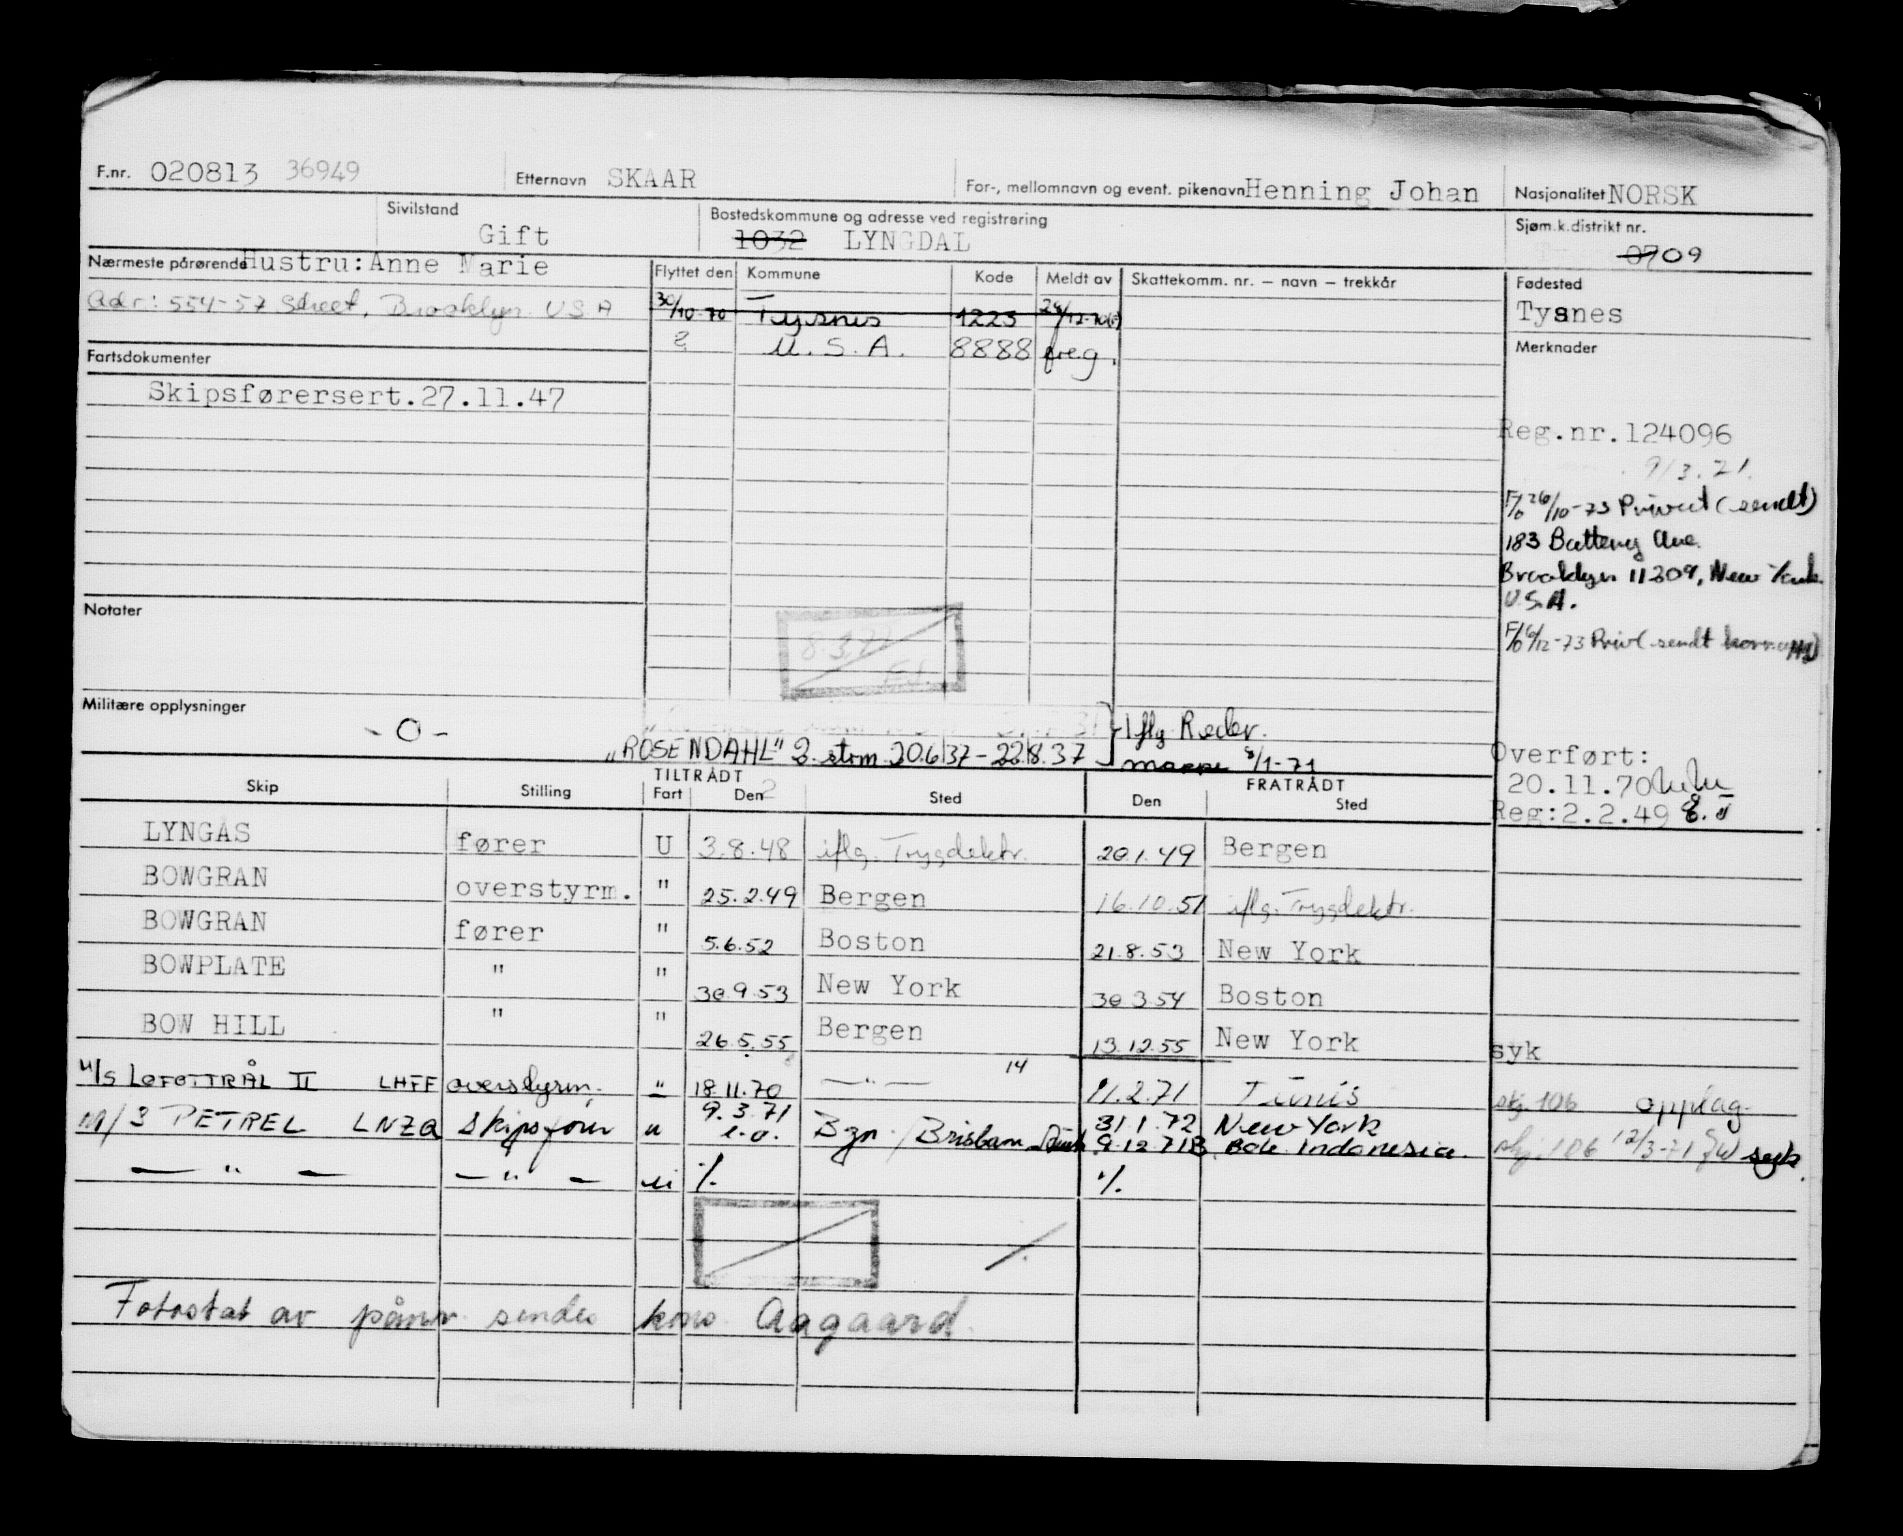 F.nr. 020813 36949 Etternavn SKAAR For-, mellomnavn og event. pikenavn Henning Johan Nasjonalitet NORSK
Sivilstand Gift Bostedskommune og adresse ved registrering 1032 LYNGDAL Sjøm.k.distrikt nr. 0709
Nærmeste pårørende Hustru: Anne Marie Flyttet den Kommune Kode Meldt av Skattekomm. nr. — navn — trekkår Fødested
Adr.: 554-57 Street, Brooklyn USA 30/10-70 Tysnes 1223 Tysnes
? U.S.A. 8888 freg.
Fartsdokumenter Merknader
Skipsførersert.27.11.47
Reg.nr.124096
9/3.71.
F/o 26/10-73 Privat (sendt)
183 Battery Ave.
Brooklyn 11209, New York
U.S.A.
Notater
8.3.72
F/o 6/12-73 Priv. sendt
Militære opplysninger
- O -
"ROSENDAHL" 2. strm. 20.6.37-22.8.37 } Iflg Reder.
mappe 8/1-71
Overført:
20.11.70
Reg:2.2.49
TILTRÅDT FRATRÅDT
Skip Stilling Fart Den Sted Den Sted
LYNGÅS fører U 3.8.48 iflg. Trygdektr. 20.1.49 Bergen
BOWGRAN overstyrm. " 25.2.49 Bergen 16.10.51 iflg. Trygdektr.
BOWGRAN fører " 5.6.52 Boston 21.8.53 New York
BOWPLATE " " 30.9.53 New York 30.3.54 Boston
BOW HILL " " 26.5.55 Bergen 13.12.55 New York syk
M/S LOFOTTRÅL II LHFF overstyrm. " 18.11.70 — " — 14 11.2.71 Tunis skj. 106 opplag
M/S PETREL LNZQ Skipsfører " 9.3.71 e.o. Bgn / Brisbane 31.1.72 New York
9.12.71 Indonesia. skj. 106 12/3-71 syk.
— " — — " — " ./. ./.
Fotostat av påmr. sendes kons. Aagaard.